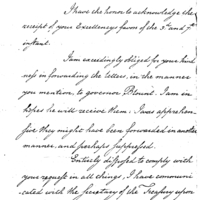 I have the honor to acknowledge the
receipt of your Excellency's favor of the 3d. and 7th
instant.
I am exceedingly obliged for your kind
ness in forwarding the letters, in the manner
you mention, to governor Blount. I am in
hopes he will receive them: I was apprehen
sive they might have been forwarded in another
manner, and perhaps suppressed.
Entirely disposed to comply with
your request in all things, I have communi
cated with the Secretary of the Treasury upon